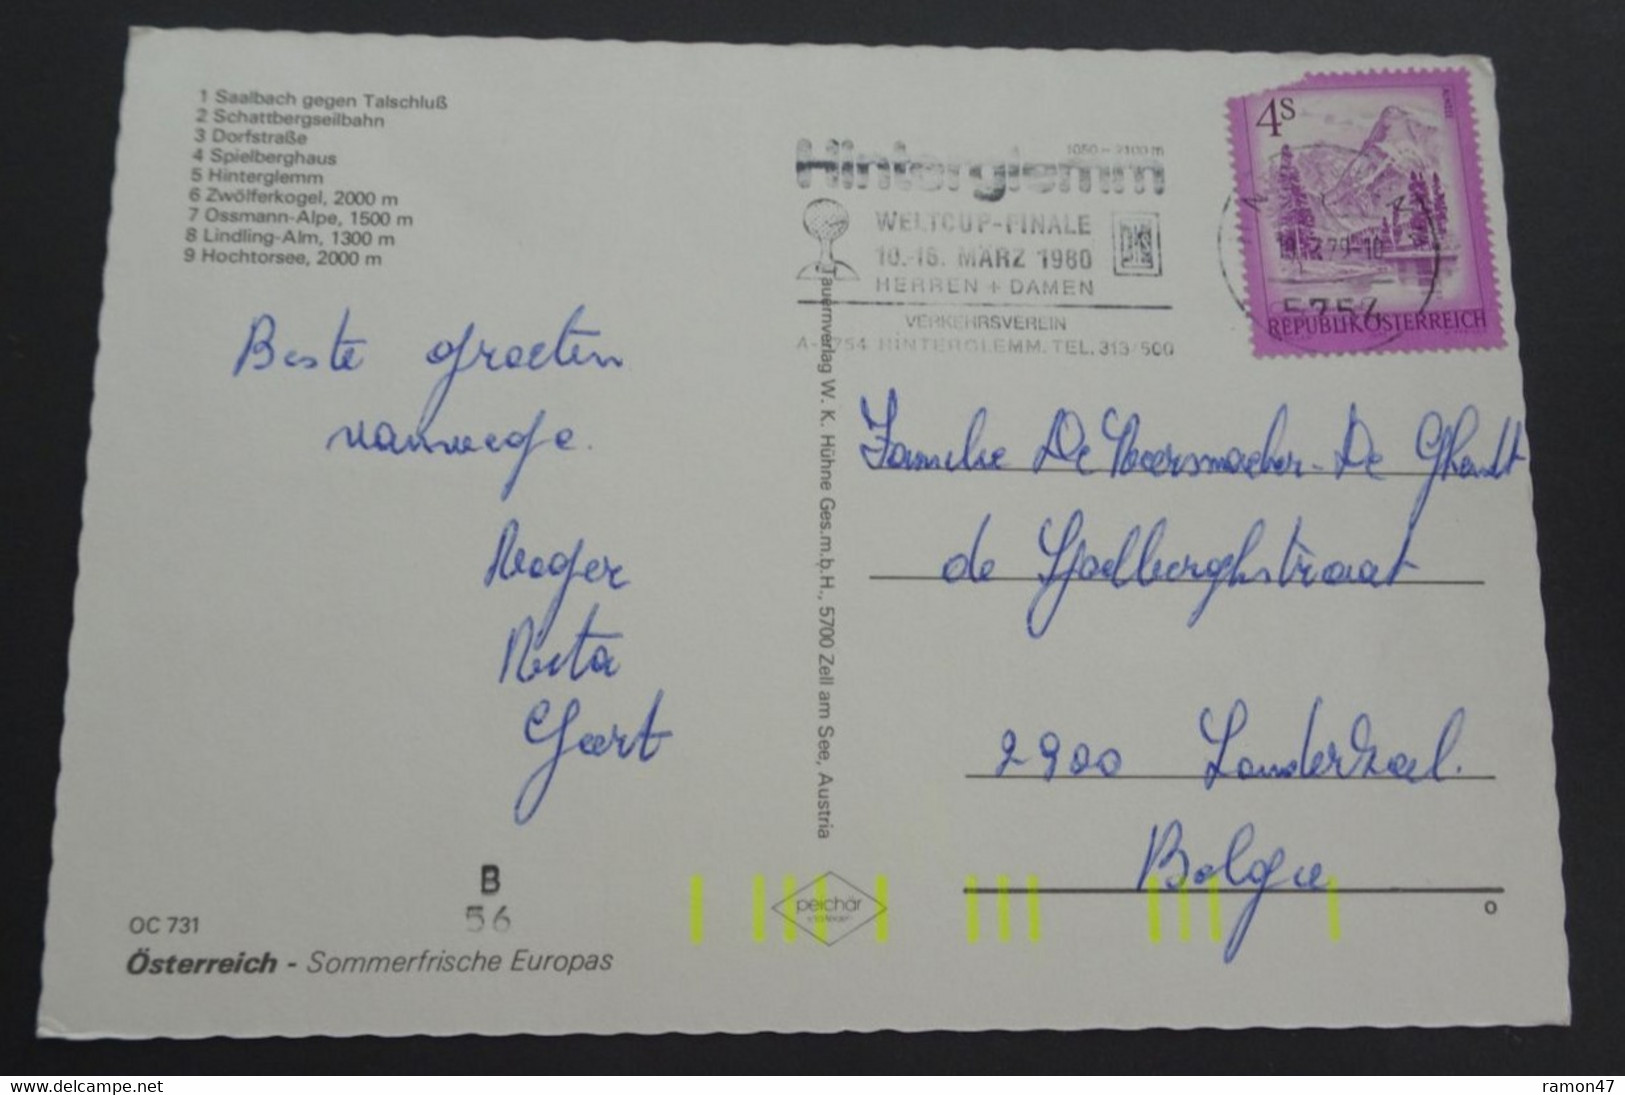 1 Saalbach gegen Talschluß
2 Schattbergseilbahn
3 Dorfstraße
4 Spielberghaus
5 Hinterglemm
6 Zwölferkogel, 2000 m
7 Ossmann-Alpe, 1500 m
8 Lindling-Alm, 1300 m
9 Hochtorsee, 2000 m
Beste groeten
vanwege.
Roger
Rita
Geert
B
56
OC 731
Österreich - Sommerfrische Europas
Tauernverlag W. K. Hühne Ges.m.b.H., 5700 Zell am See, Austria
peichär
1050 - 2100 m
Hinterglemm
WELTCUP-FINALE
10.-16. MÄRZ 1980
HERREN + DAMEN
VERKEHRSVEREIN
A-5754 HINTERGLEMM. TEL. 313/500
4S
ALMSEE
REPUBLIK ÖSTERREICH
5754
Familie De Meersmacher - De Ghendt
de Sadelberghstraat
2900 Londerzeel.
Belgie
o
www.delcampe.net
ramon47